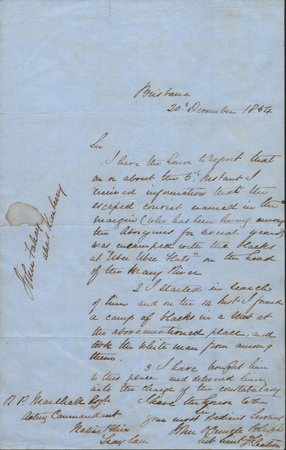 Brisbane
20th December 1854
Sir
I have the honor to report that
on or about the 5th Instant I
received information that the
escaped convict named in the
margin (who has been living among
the Aborigines for several years)
was encamped with the blacks
at "Uber Uber Flats" on the head
of the Mary River
2 I started in search
of him and on the I found
a camp of blacks in a at
the abovementioned place, and
took the white man from among
them.
3 I have brought him
to this place and delivered him
into the charge of the constabulary
I have the honor to be
your most obedient Servant
John
R P Marshall Esqr
Acting Commandant
Native Police
John